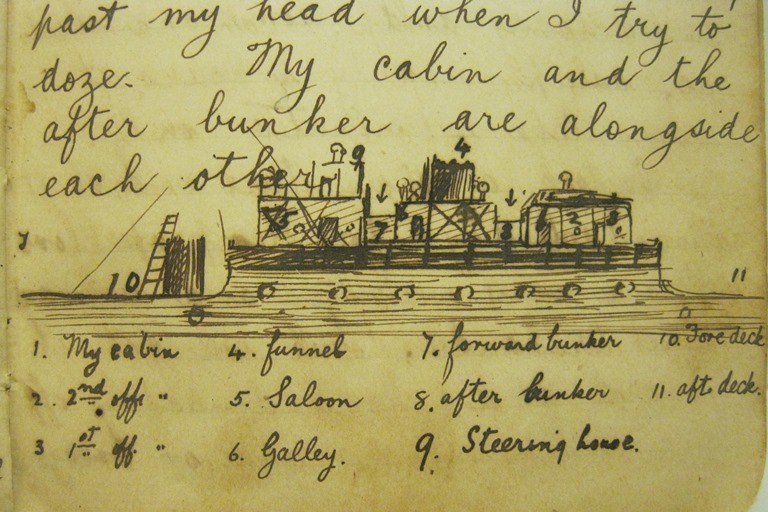 past my head when I try to
doze. My cabin and the
after bunker are alongside
each other.
9 4
5 7 6 8 6 2 3
10 11
1. My cabin 4. funnel 7. forward bunker 10. Fore deck
2. 2nd off. " 5. Saloon 8. after bunker 11. aft deck.
3 1st off. " 6. Galley. 9. Steering house.